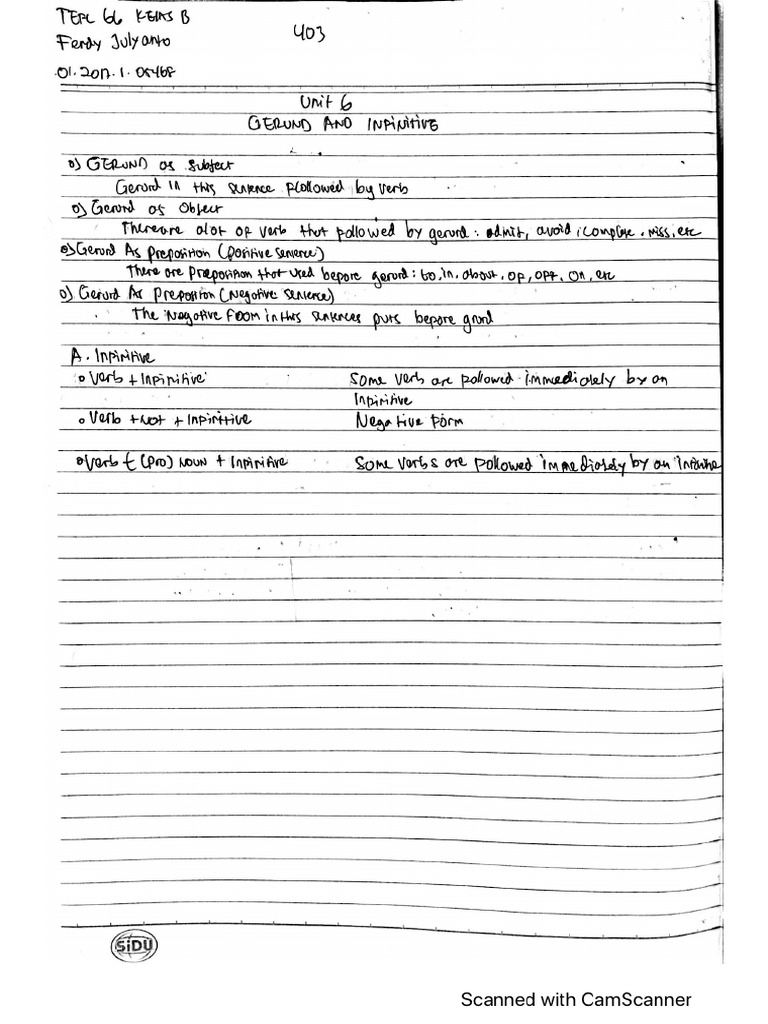 TEFL 66 KElAS B
Ferdy Julyanto
403
01.2017.1.05468
Unit 6
GERUND AND INFINITIVE
o) GERUND as Subject
Gerund in this sentence followed by verb
o) Gerund as Object
There are alot of verb that followed by gerund : admit, avoid, complete, miss, etc
o) Gerund As preposition (positive sentence)
There are preposition that used before gerund : to, in, about, of, off, on, etc
o) Gerund As preposition (Negative sentence)
The Negative Foom in this sentences puts before grund
A. Infinitive
o Verb + Infinitive Some verb are followed immediately by an
Infinitive
o Verb + not + Infinitive Negative Form
o Verb + (pro) noun + Infinitive Some verbs are followed immediately by an Infinitive
SiDU
Scanned with CamScanner